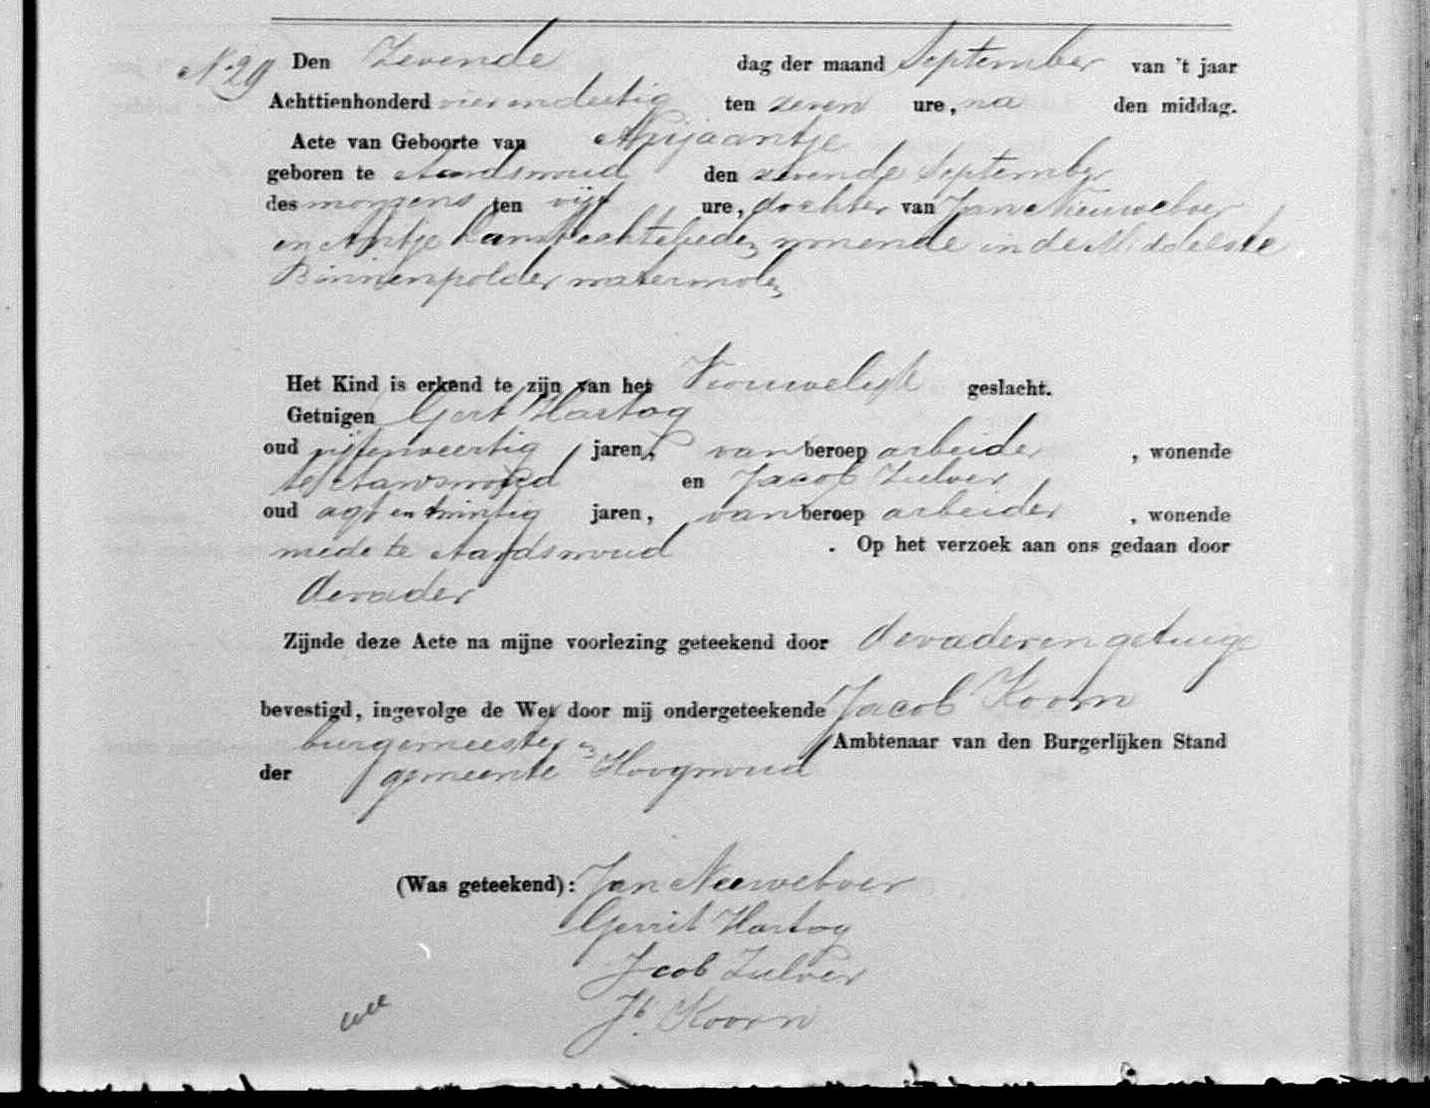 N. 29 Den Zevende dag der maand September van 't jaar
Achttienhonderd vier en dertig ten zeven ure, na den middag.
Acte van Geboorte van Arijaantje
geboren te Aardswoud den zevende September
des morgens ten vijf ure, dochter van Jan Nieuweboer
en Antje echteliede, wonende in de Middelste
Binnenpolder watermole,
Het Kind is erkend te zijn van het Vrouwelijk geslacht.
Getuigen Gert Hartog
oud vijfenveertig jaren, van beroep arbeider, wonende
te Aarswoud en Jacob Zulver
oud agt en twintig jaren, van beroep arbeider, wonende
mede te Aardswoud. Op het verzoek aan ons gedaan door
de vader
Zijnde deze Acte na mijne voorlezing geteekend door de vader en getuige
bevestigd, ingevolge de Wet door mij ondergeteekende Jacob Koorn
burgemeester en Ambtenaar van den Burgerlijken Stand
der gemeente Hoogwoud
(Was geteekend): Jan Neeweboer
Gerrit Hartog
Jcob Zulver
Jb. Koorn